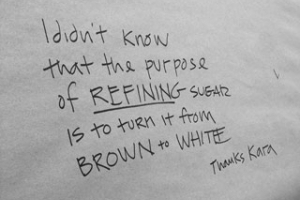 I didn't know
that the purpose
of REFINING SUGAR
IS to turn it from
BROWN to WHITE
Thanks Kara